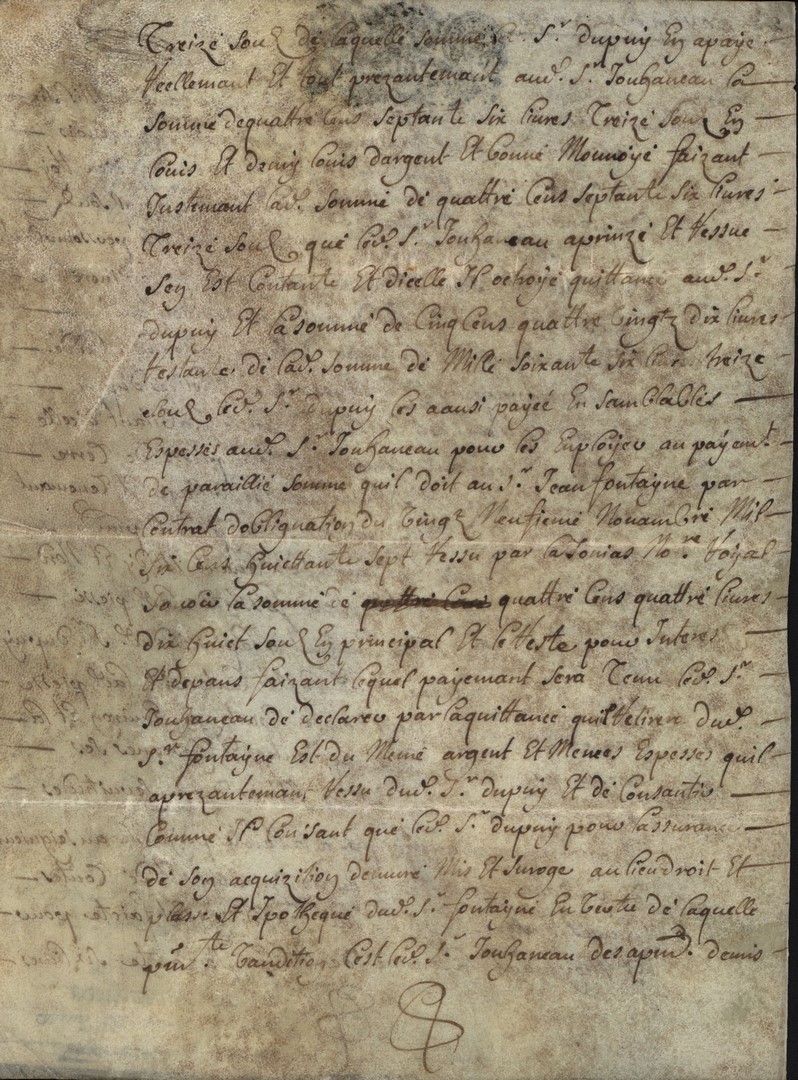 Treize soulz de laquelle somme le Sr. dupuy En apaye
Reellemant Et tout prezantemant aud. Sr. Jouhaneau la
somme dequattre Cens septante six livres Treize soulz En
Louis Et demy Louis dargent Et bonne Monnoye faizant
Justemant lad. somme de quattre Cens septante six livres
Treize soulz que led. Sr. Jouhaneau aprinze Et Ressue
Sen Est Contante Et dicelle Il octroye quittance aud. Sr.
dupuy Et la somme de Cinq Cens quattre vingtz dix livres
Restante de lad. somme de Mille soixante six livres treize
soulz led. Sr. dupuy les aausi payee En samblables
Espesses aud. Sr. Jouhaneau pour les Employer au payemt.
de paraillie somme quil doit au Sr. Jean fontayne par
Contrat doblignation du vingt Neufieme Nouambre Mil
Six Cens huiettante sept Ressu par Nore. Royal
Sauoir la somme de quattre Cens quattre livres
dix huiet soulz En principal Et le Reste pour Interes
Et depans faizant lequel payemant sera Tenu led. Sr.
Jouhaneau de declarer par laquittance quil Retirera dud.
Sr. fontayne Est du Meme argent Et Menees Espesses quil
aprezantemant Ressu dud. Sr. dupuy Et de Consantir
Comme Il Consant que led. Sr. dupuy pour lassurance
de son acquizition demure Mis Et suroge au lieu droit Et
plasse Et Ipotheque dud. Sr. fontayne En vertu de laquelle
pnte. vandition Cest led. Sr. Jouhaneau des apnt. demis